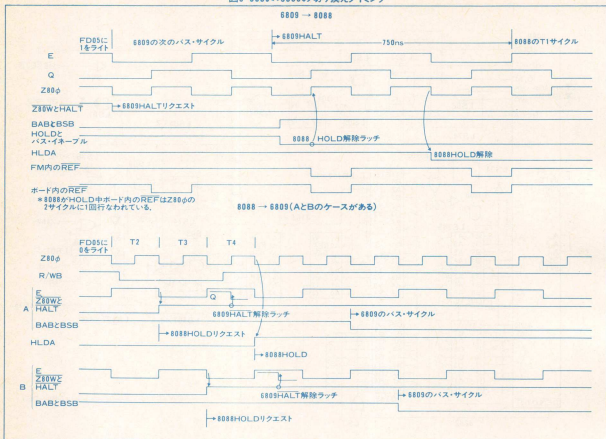 6809 → 8088
FD05に
1をライト
6809の次のバス・サイクル
→6809HALT
750ns
8088のT1サイクル
E
Q
Z80φ
Z80WとHALT
→6809HALTリクエスト
BABとBSB
HOLDと
バス・イネーブル
8088 HOLD解除ラッチ
HLDA
8088HOLD解除
FM内のREF
ボード内のREF
*8088がHOLD中ボード内のREFはZ80φの
2サイクルに1回行なわれている.
8088 → 6809(AとBのケースがある)
FD05に
0をライト
T2
T3
T4
Z80φ
R/WB
A
E
Q
Z80Wと
HALT
6809HALT解除ラッチ
→6809のバス・サイクル
BABとBSB
→8088HOLDリクエスト
HLDA
→8088HOLD
B
E
Z80Wと
HALT
6809HALT解除ラッチ
→6809のバス・サイクル
BABとBSB
→8088HOLDリクエスト